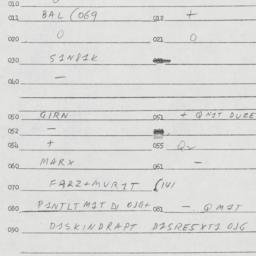 010
011 BAL (069 012 +
020 0 021 0
030 S1N81K
040 —
050 GIRN 051 + QM1T DUZE
052 —
054 + 055
060 MARX 061 —
070 FARZ+MUR1T (141
080 P1NTLT M1T D OJG+ 081 — QM1T
090 D1SKINDRAPT D1SRE5XT1 OJG